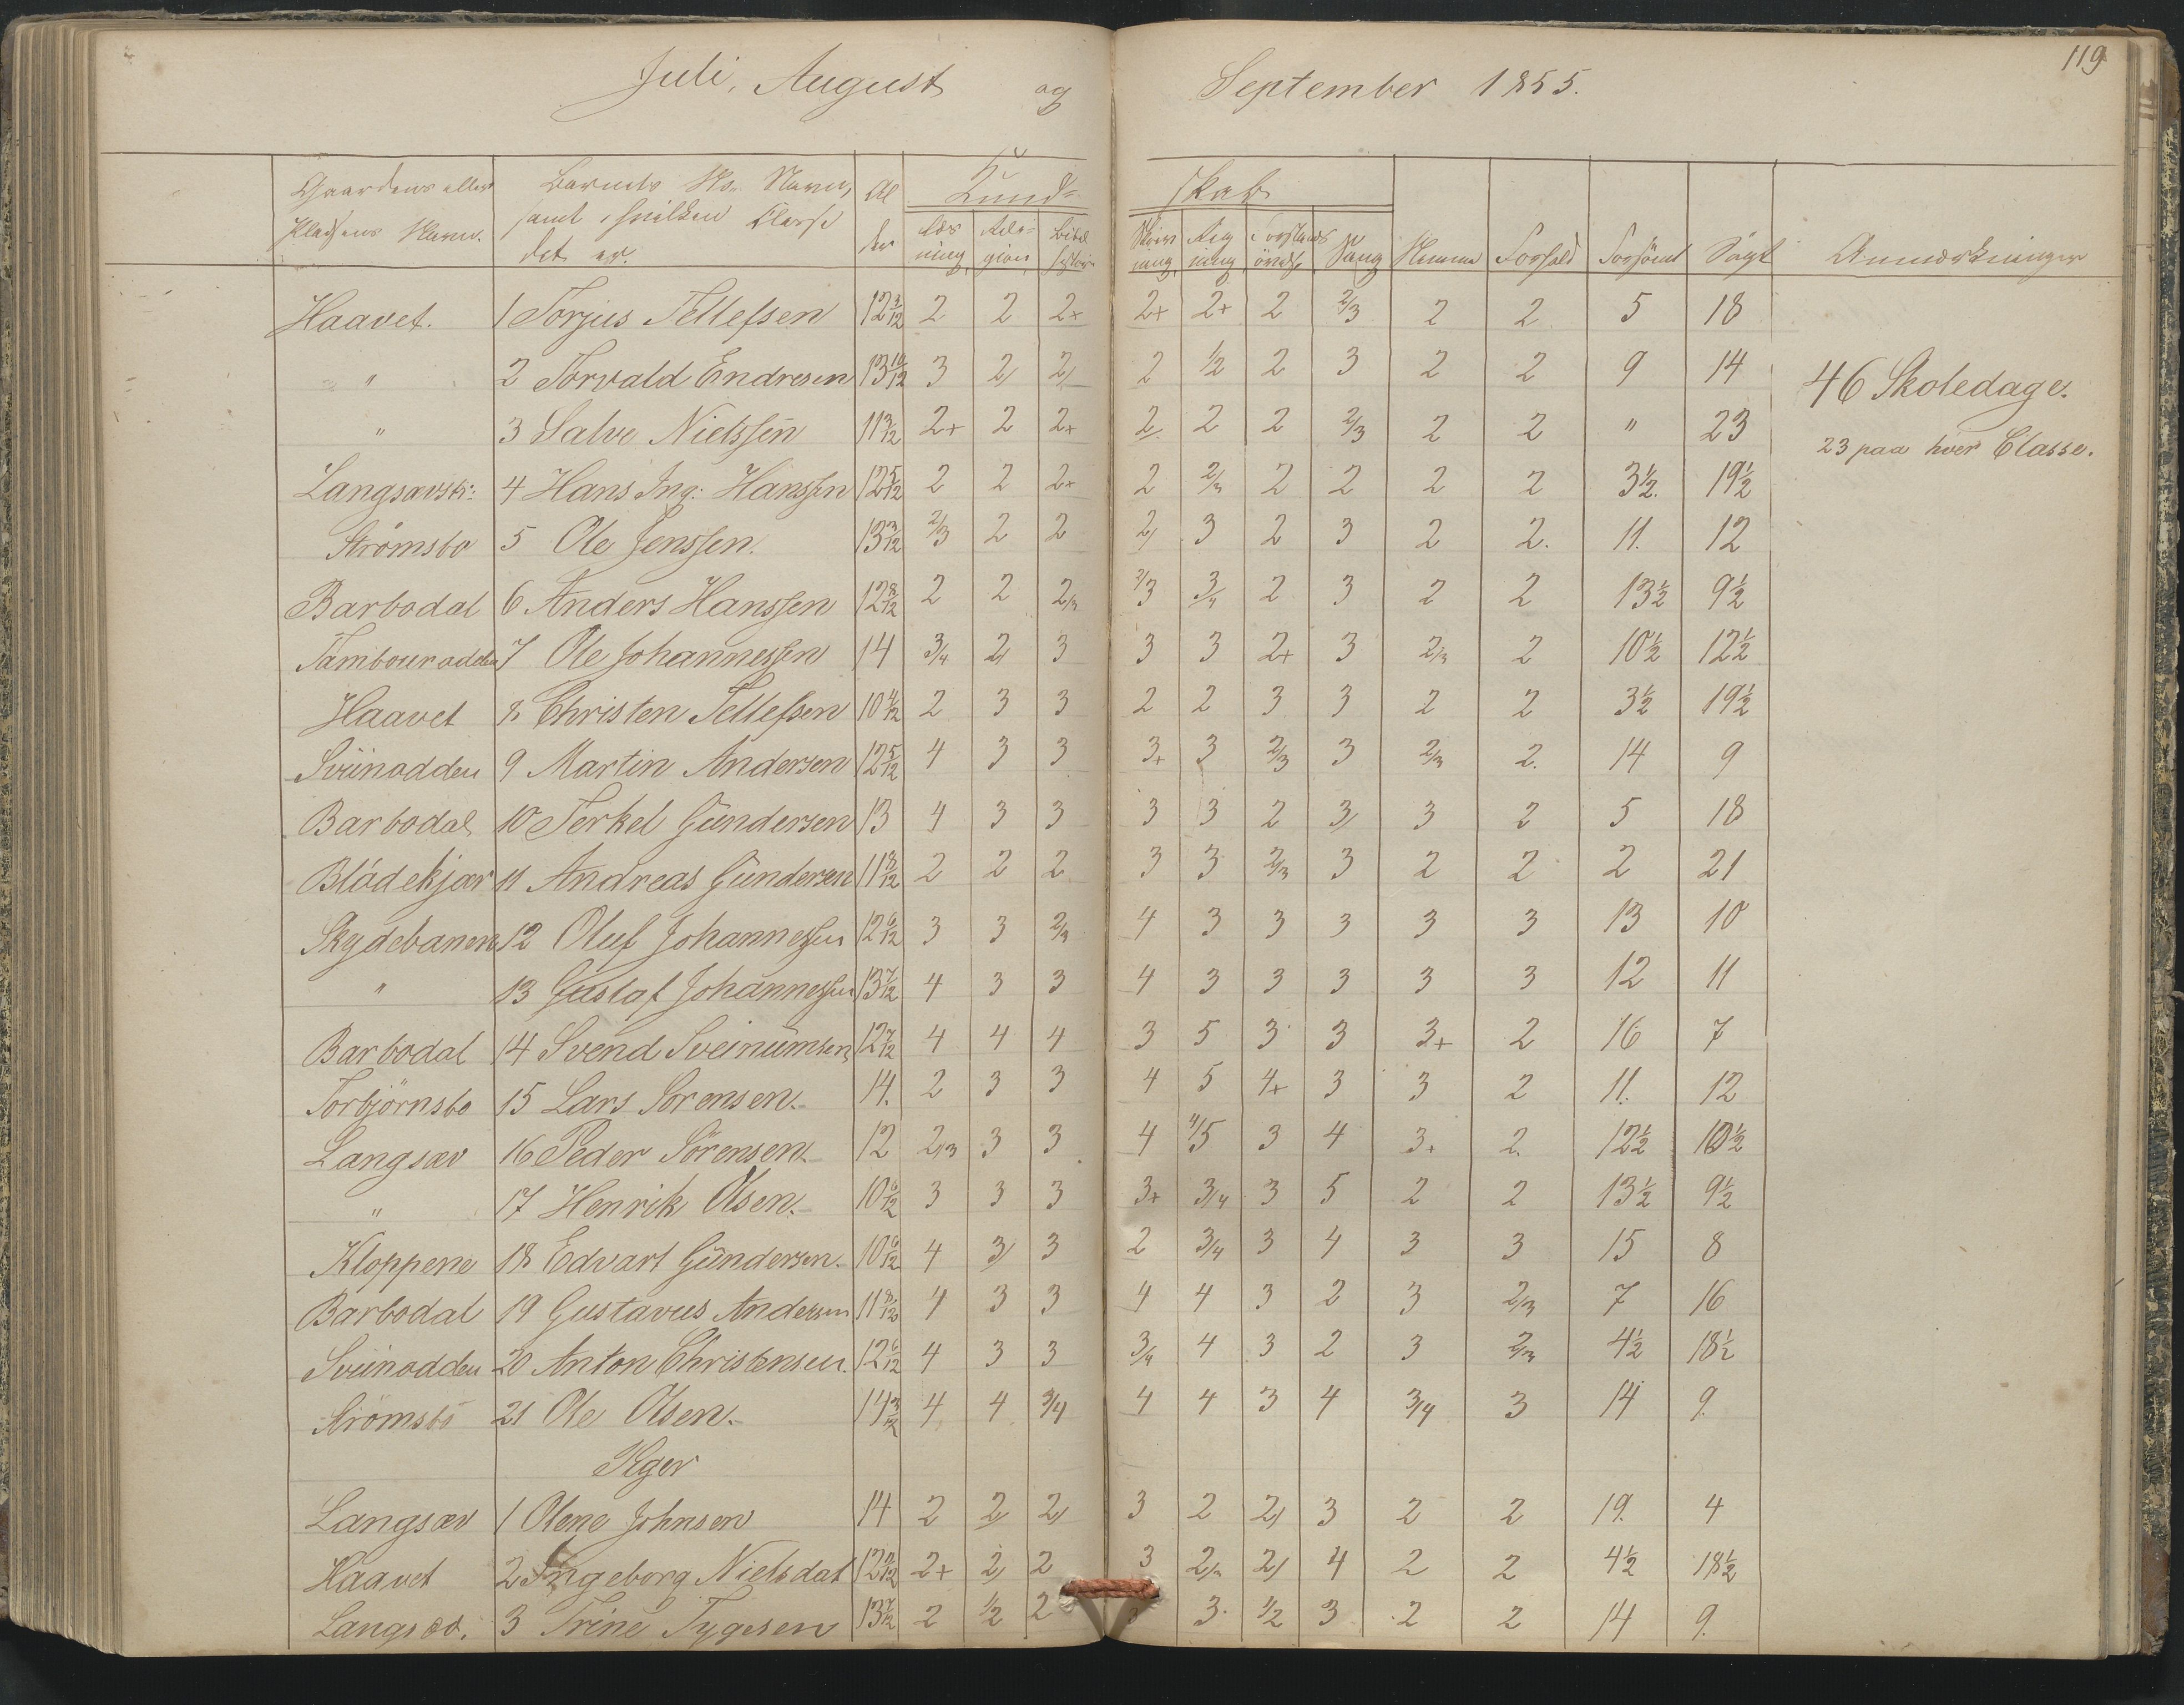 119
Juli, August og September 1855.
Gaardens eller Pladsens Navn. Barnets No. Navn, samt i hvilken Classe det er. Al der Kund= skab Læs ning Reli= gion Bibel historie Skriv ning Reg ning Forstands Sang Nemme Forhold Forsömt Sögt Anmærkninger
Haavet. 1 Torjus Tellefsen 12 3/12 2 2 2+ 2+ 2+ 2 2/3 2 2 5 18
" 2 Torvald Endresen 13 10/12 3 2/ 2/ 2 1/2 2 3 2 2 9 14
46 Skoledage.
" 3 Salve Nielssen 11 3/12 2+ 2 2+ 2 2 2 2/3 2 2 " 23
23 paa hver Classe.
Langsævstr: 4 Hans Ing: Hanssen 12 5/12 2 2 2+ 2 2/3 2 2 2 2 3½ 19½
Strömsbo 5 Ole Jenssen. 13 3/12 2/3 2 2 2/ 3 2 3 2 2. 11. 12
Barbodal 6 Anders Hanssen 12 8/12 2 2 2/3 2/3 3/4 2 3 2 2 13½ 9½
Tambourodden 7 Ole Johannessen 14 3/4 2/ 3 3 3 2+ 3 2/3 2 10½ 12½
Haavet 8 Christen Tellefsen 10 4/12 2 3 3 2 2 3 3 2 2 3½ 19½
Sviinodden 9 Martin Andersen 12 5/12 4 3 3 3+ 3 2/3 3 2/3 2. 14 9
Barbodal 10 Terkel Gundersen 13 4 3 3 3 3 2 3/ 3 2 5 18
Blödekjær 11 Andreas Gundersen 11 8/12 2 2 2 3 3 2/3 3 2 2 2 21
Skydebanen 12 Oluf Johannessen 12 6/12 3 3 2/3 4 3 3 3 3 3 13 10
" 13 Gustaf Johannessen 13 7/12 4 3 3 4 3 3 3 3 3 12 11
Barbodal 14 Svend Sveinumsen 12 7/12 4 4 4 3 5 3 3 3+ 2 16 7
Torbjörnsbo 15 Lars Sorensen. 14. 2 3 3 4 5 4+ 3 3 2 11. 12
Langsæv 16 Peder Sörensen. 12 2/3 3 3 4 4/5 3 4 3+ 2. 12½ 10½
" 17 Henrik Olsen. 10 6/12 3 3 3 3+ 3/4 3 5 2 2 13½ 9½
Kloppene 18 Edvart Gundersen. 10 6/12 4 3/ 3 2 3/4 3 4 3 3 15 8
Barbodal 19 Gustavus Andersen 11 8/12 4 3 3 4 4 3 2 3 2/3 7 16
Sviinodden 20 Anton Christensen. 12 6/12 4 3 3 3/4 4 3 2 3 2/3 4½ 18½
Strömsbö 21 Ole Olsen. 14 3/12 4 4 3/4 4 4 3 4 3/4 3 14 9.
Piger
Langsæv 1 Olene Johnsen 14 2 2/ 2/ 3 2 2/ 3 2 2 19. 4
Haavet 2 Ingeborg Nielsdat 12 2/12 2+ 2/ 2 3 2/3 2/ 4 2 2 4½ 18½
Langsæv. 3 Trine Tygesen 13 7/12 2 1/2 2 3 3 1/2 3 2 2 14 9.